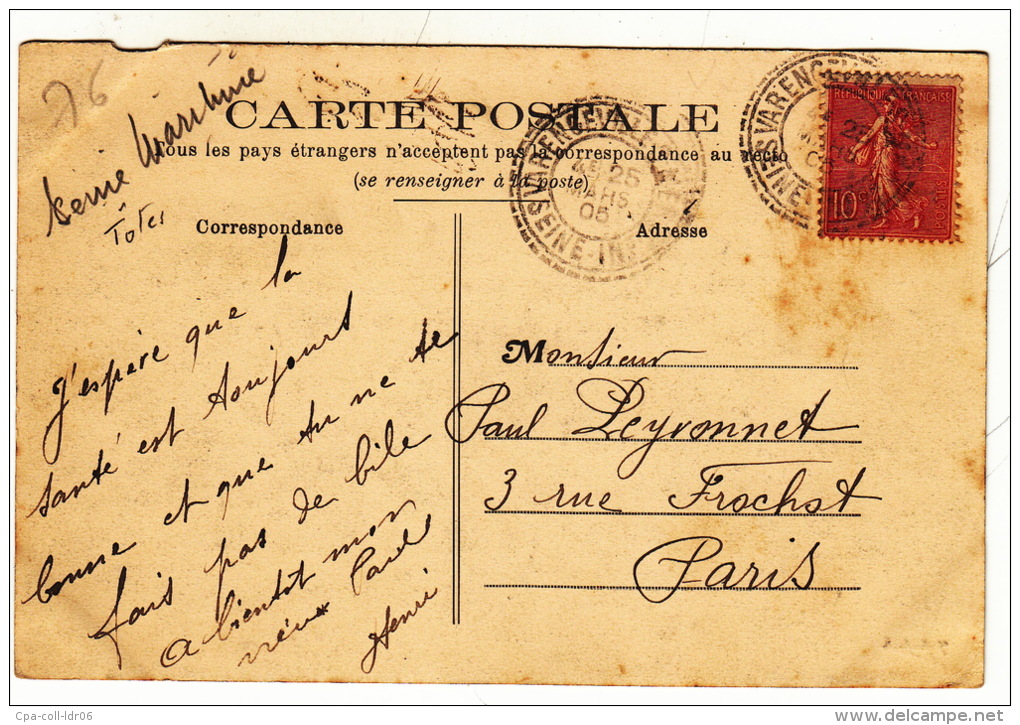 76
Seine Maritime
Tôtes
CARTE POSTALE
Tous les pays étrangers n'acceptent pas la correspondance au recto
(se renseigner à la poste)
Correspondance
J'espère que la
santé est toujours
bonne et que tu ne te
fais pas de bile
a bientot mon
vieux Paul
Henri
VARENGEVILLE
25
MARS
05
SEINE-INF
Adresse
Monsieur
Paul Peyronnet
3 rue Frochot
Paris
VARENGEVILLE
25
SEINE
REPUBLIQUE FRANÇAISE
10
Cpa-coll-ldr06
www.delcampe.net